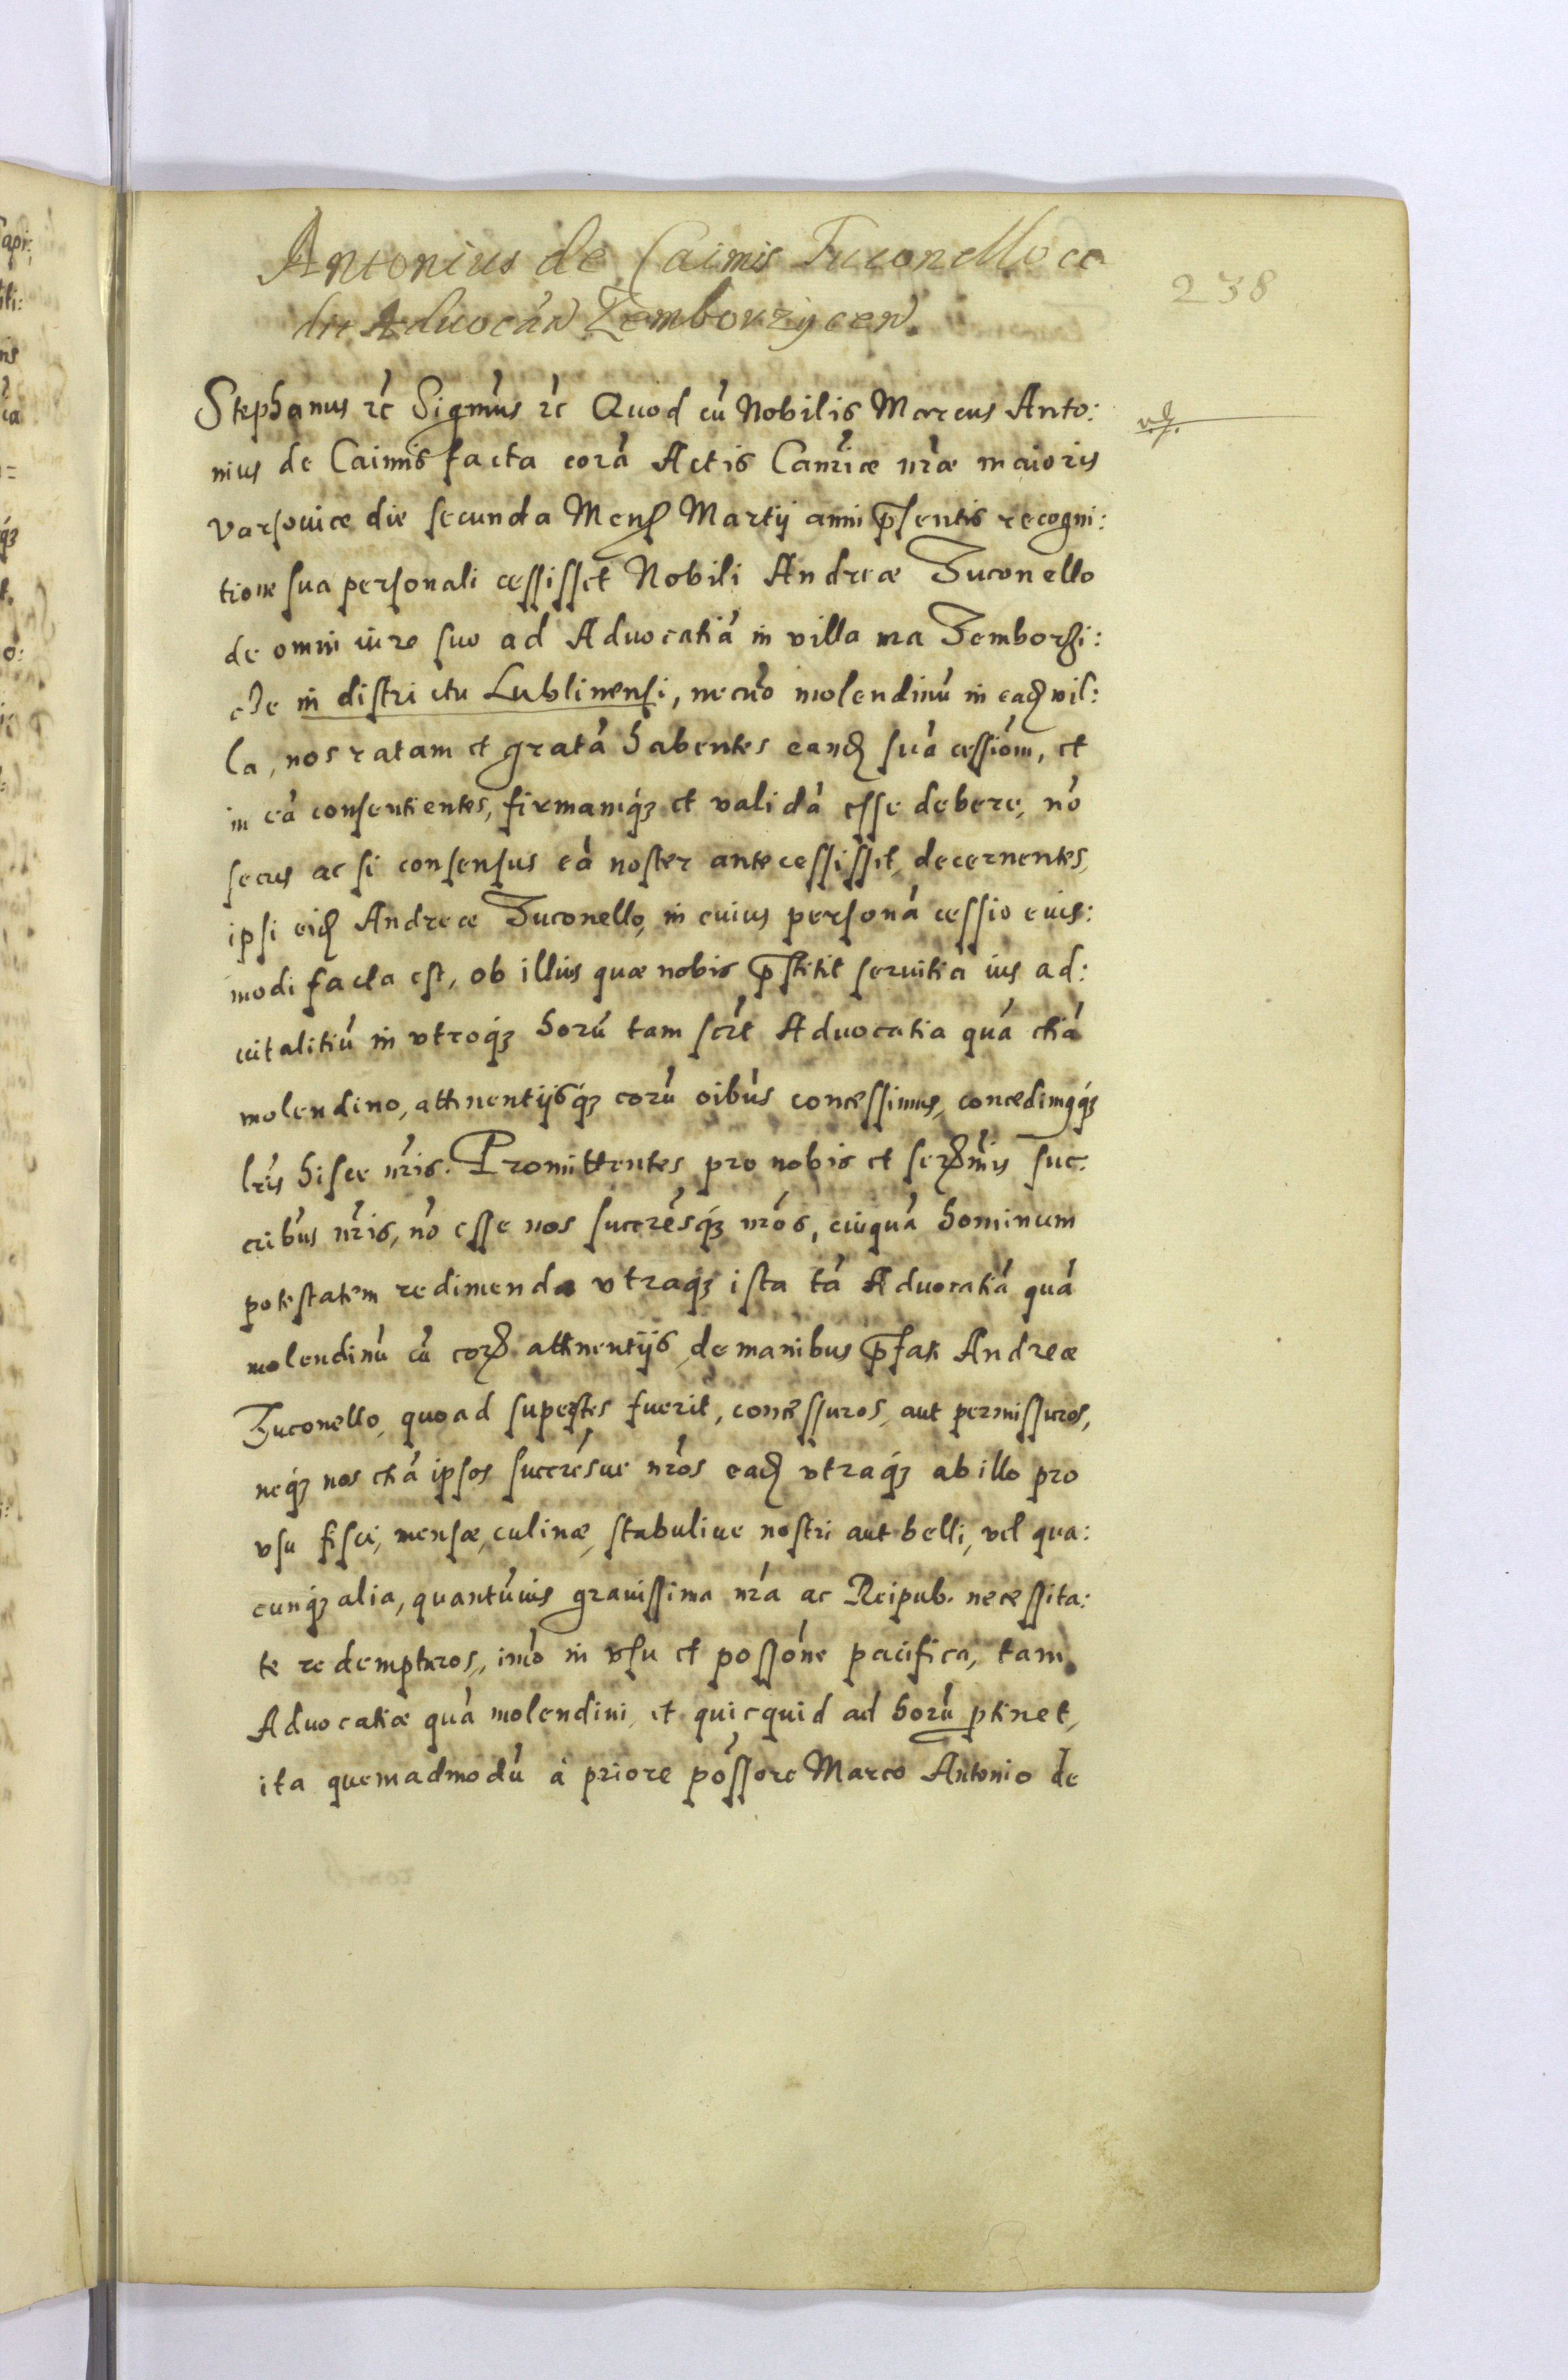 Antonius de Caimis Tuconello ce
dit Aduocan̄ Zemborzycen̄.
238
Stephanus rc̄ Sigm̄us rc̄ Quod cū Nobilis Marcus Anto:
nius de Caimis facta corā Actis Can̄riæ nr̄æ maioris
Varsouiæ die secunda Mens̄ Martij anni p̄sentis recogni:
tione sua personali cessisset Nobili Andreæ Tuconello
de omni iure suo ad Aduocatiā in villa nr̄a Zemborzi:
cze in districtu Lublinensi, necnō molendinū in ead̄ vil:
la, nos ratam et gratā habentes eand̄ suā cessiōm, et
in eā consentientes, firmamq̨́ et validā esse debere, nō
secus ac si consensus eā noster antecessisset, decernentes,
ipsi eid̄ Andreæ Tuconello, in cuius personā cessio eius:
modi facta est, ob illius quæ nobis p̄stitit seruitia ius ad:
uitalitiū in vtroq̨́ horū tam scr̄t Aduocatia quā etiā
molendino, attinentijsq̨́ eorū oībus concessimus, concedimusq̨́
lr̄is hisce nr̄is. Promittentes pro nobis et serm̄is suc:
cribūs nr̄is, nō esse nos succrēsq̨́ nrōs, cuiquā hominum
potestatem redimenda vtraq̨́ ista tā Aduocatiā quā
molendinū cū eor̄ attinentijs, de manibus p̄fati Andreæ
Tuconello, quoad superstes fuerit, concessuros, aut permissuros,
neq̨́ nos etiā ipsos succrēsue nrōs ead̄ vtraq̨́ ab illo pro
vsu fisci, mensæ, culinæ, stabuliue nostri aut belli, vel qua:
cunq̨́ alia, quantūuis grauissima nrā ac Reipub. necessita:
te redempturos, imō in vsu et possōne pacifica, tam
Aduocatiæ quā molendini, et quicquid ad horū ptinet,
ita quemadmodū à priore pōssore Marco Antonio de